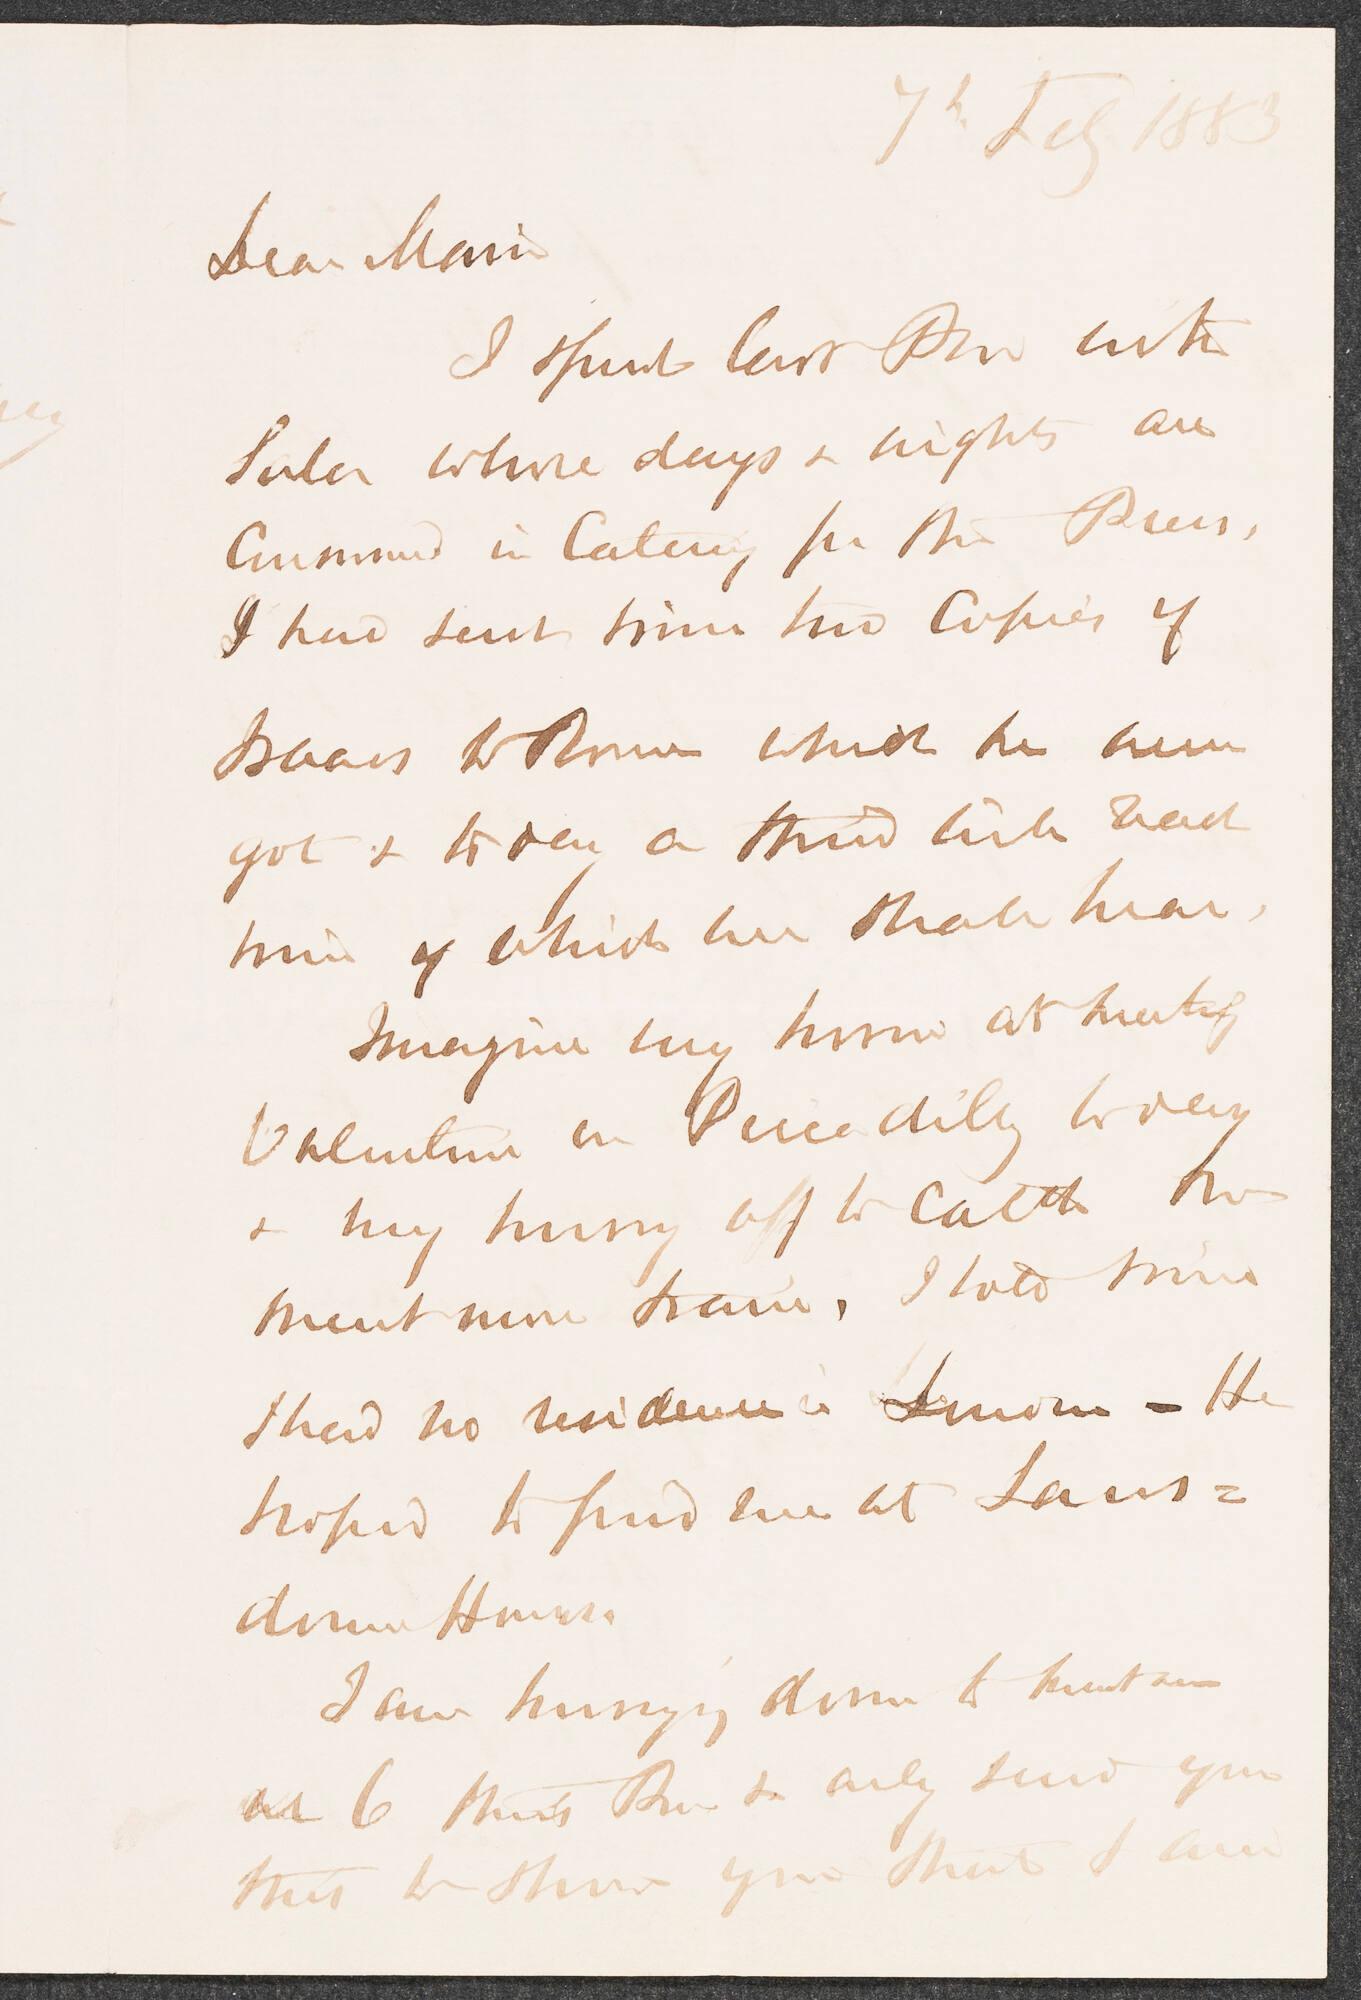 7th Feby 1883
Dear Marie
I spent last Eve with
Sala whose days & nights are
Consumed in Catering for the Press,
I had sent him two Copies of
Isaacs to Rome which he never
got & today a third will reach
him of which we shall hear,
Imagine my horror at meeting
Valentine in Piccadilly today
& my hurry off to Catch the
next train, I told him
I had no residence in London - He
hoped to find me at Lans=
downe House.
I am hurrying down to
at 6 this Eve & only send you
this to show you that I am